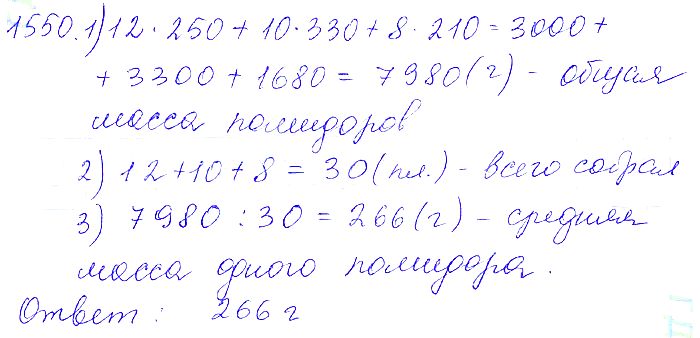 1550.1) 12 · 250 + 10 · 330 + 8 · 210 = 3000 +
+ 3300 + 1680 = 7980 (г) - общая
масса помидоров
2) 12 + 10 + 8 = 30 (пл.) - всего собрал
3) 7980 : 30 = 266 (г) - средняя
масса одного помидора.
Ответ : 266 г